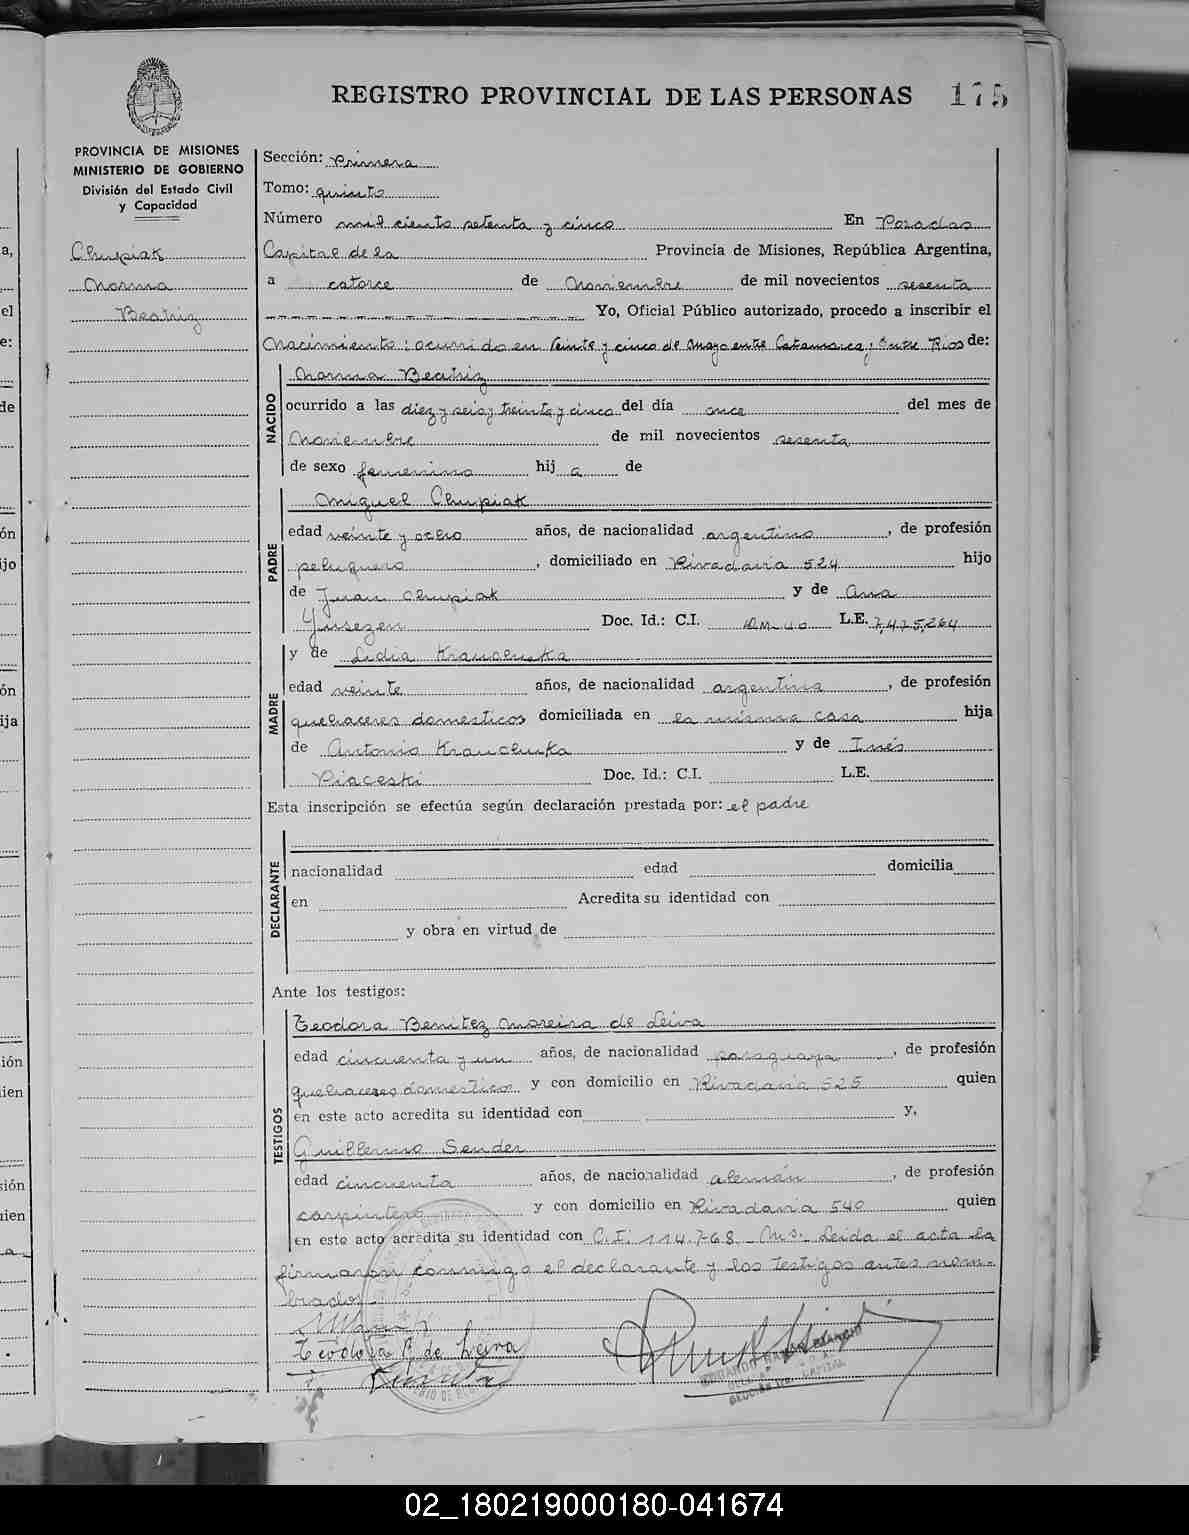 REGISTRO PROVINCIAL DE LAS PERSONAS 175
PROVINCIA DE MISIONES
MINISTERIO DE GOBIERNO
División del Estado Civil
y Capacidad
Chupiak
Norma
Beatriz
Sección: Primera
Tomo: quinto
Número mil ciento setenta y cinco En Posadas
Capital de la Provincia de Misiones, República Argentina,
a catorce de Noviembre de mil novecientos sesenta
Yo, Oficial Público autorizado, procedo a inscribir el
Nacimiento: ocurrido en Veinte y cinco de Mayo entre Catamarca y Entre Rios de:
NACIDO
Norma Beatriz
ocurrido a las diez y seis y treinta y cinco del día once del mes de
Noviembre de mil novecientos sesenta
de sexo femenino hij a de
PADRE
Miguel Chupiak
edad veinte y ocho años, de nacionalidad argentino, de profesión
peluquero, domiciliado en Rivadavia 524 hijo
de Juan Chupiak y de Ana
Doc. Id.: C.I. L.E. 7,475,264
MADRE
y de Lidia Krauchuka
edad veinte años, de nacionalidad argentina, de profesión
quehaceres domesticos domiciliada en la misma casa hija
de Antonio Krauchuka y de Inés
Piaceski Doc. Id.: C.I. L.E.
Esta inscripción se efectúa según declaración prestada por: el padre
DECLARANTE
nacionalidad edad domicilia
en Acredita su identidad con
y obra en virtud de
Ante los testigos:
TESTIGOS
Teodora Benitez Moreira de Leiva
edad cincuenta y un años, de nacionalidad paraguaya, de profesión
quehaceres domestico y con domicilio en Rivadavia 525 quien
en este acto acredita su identidad con y,
Guillermo Sender
edad cincuenta años, de nacionalidad alemán, de profesión
carpintero y con domicilio en Rivadavia 540 quien
en este acto acredita su identidad con C.I. 114.768 Ms. Leida el acta la
firmaron conmingo el declarante y los testigos antes nom-
brados.
Teodora B de Leiva
02_180219000180-041674